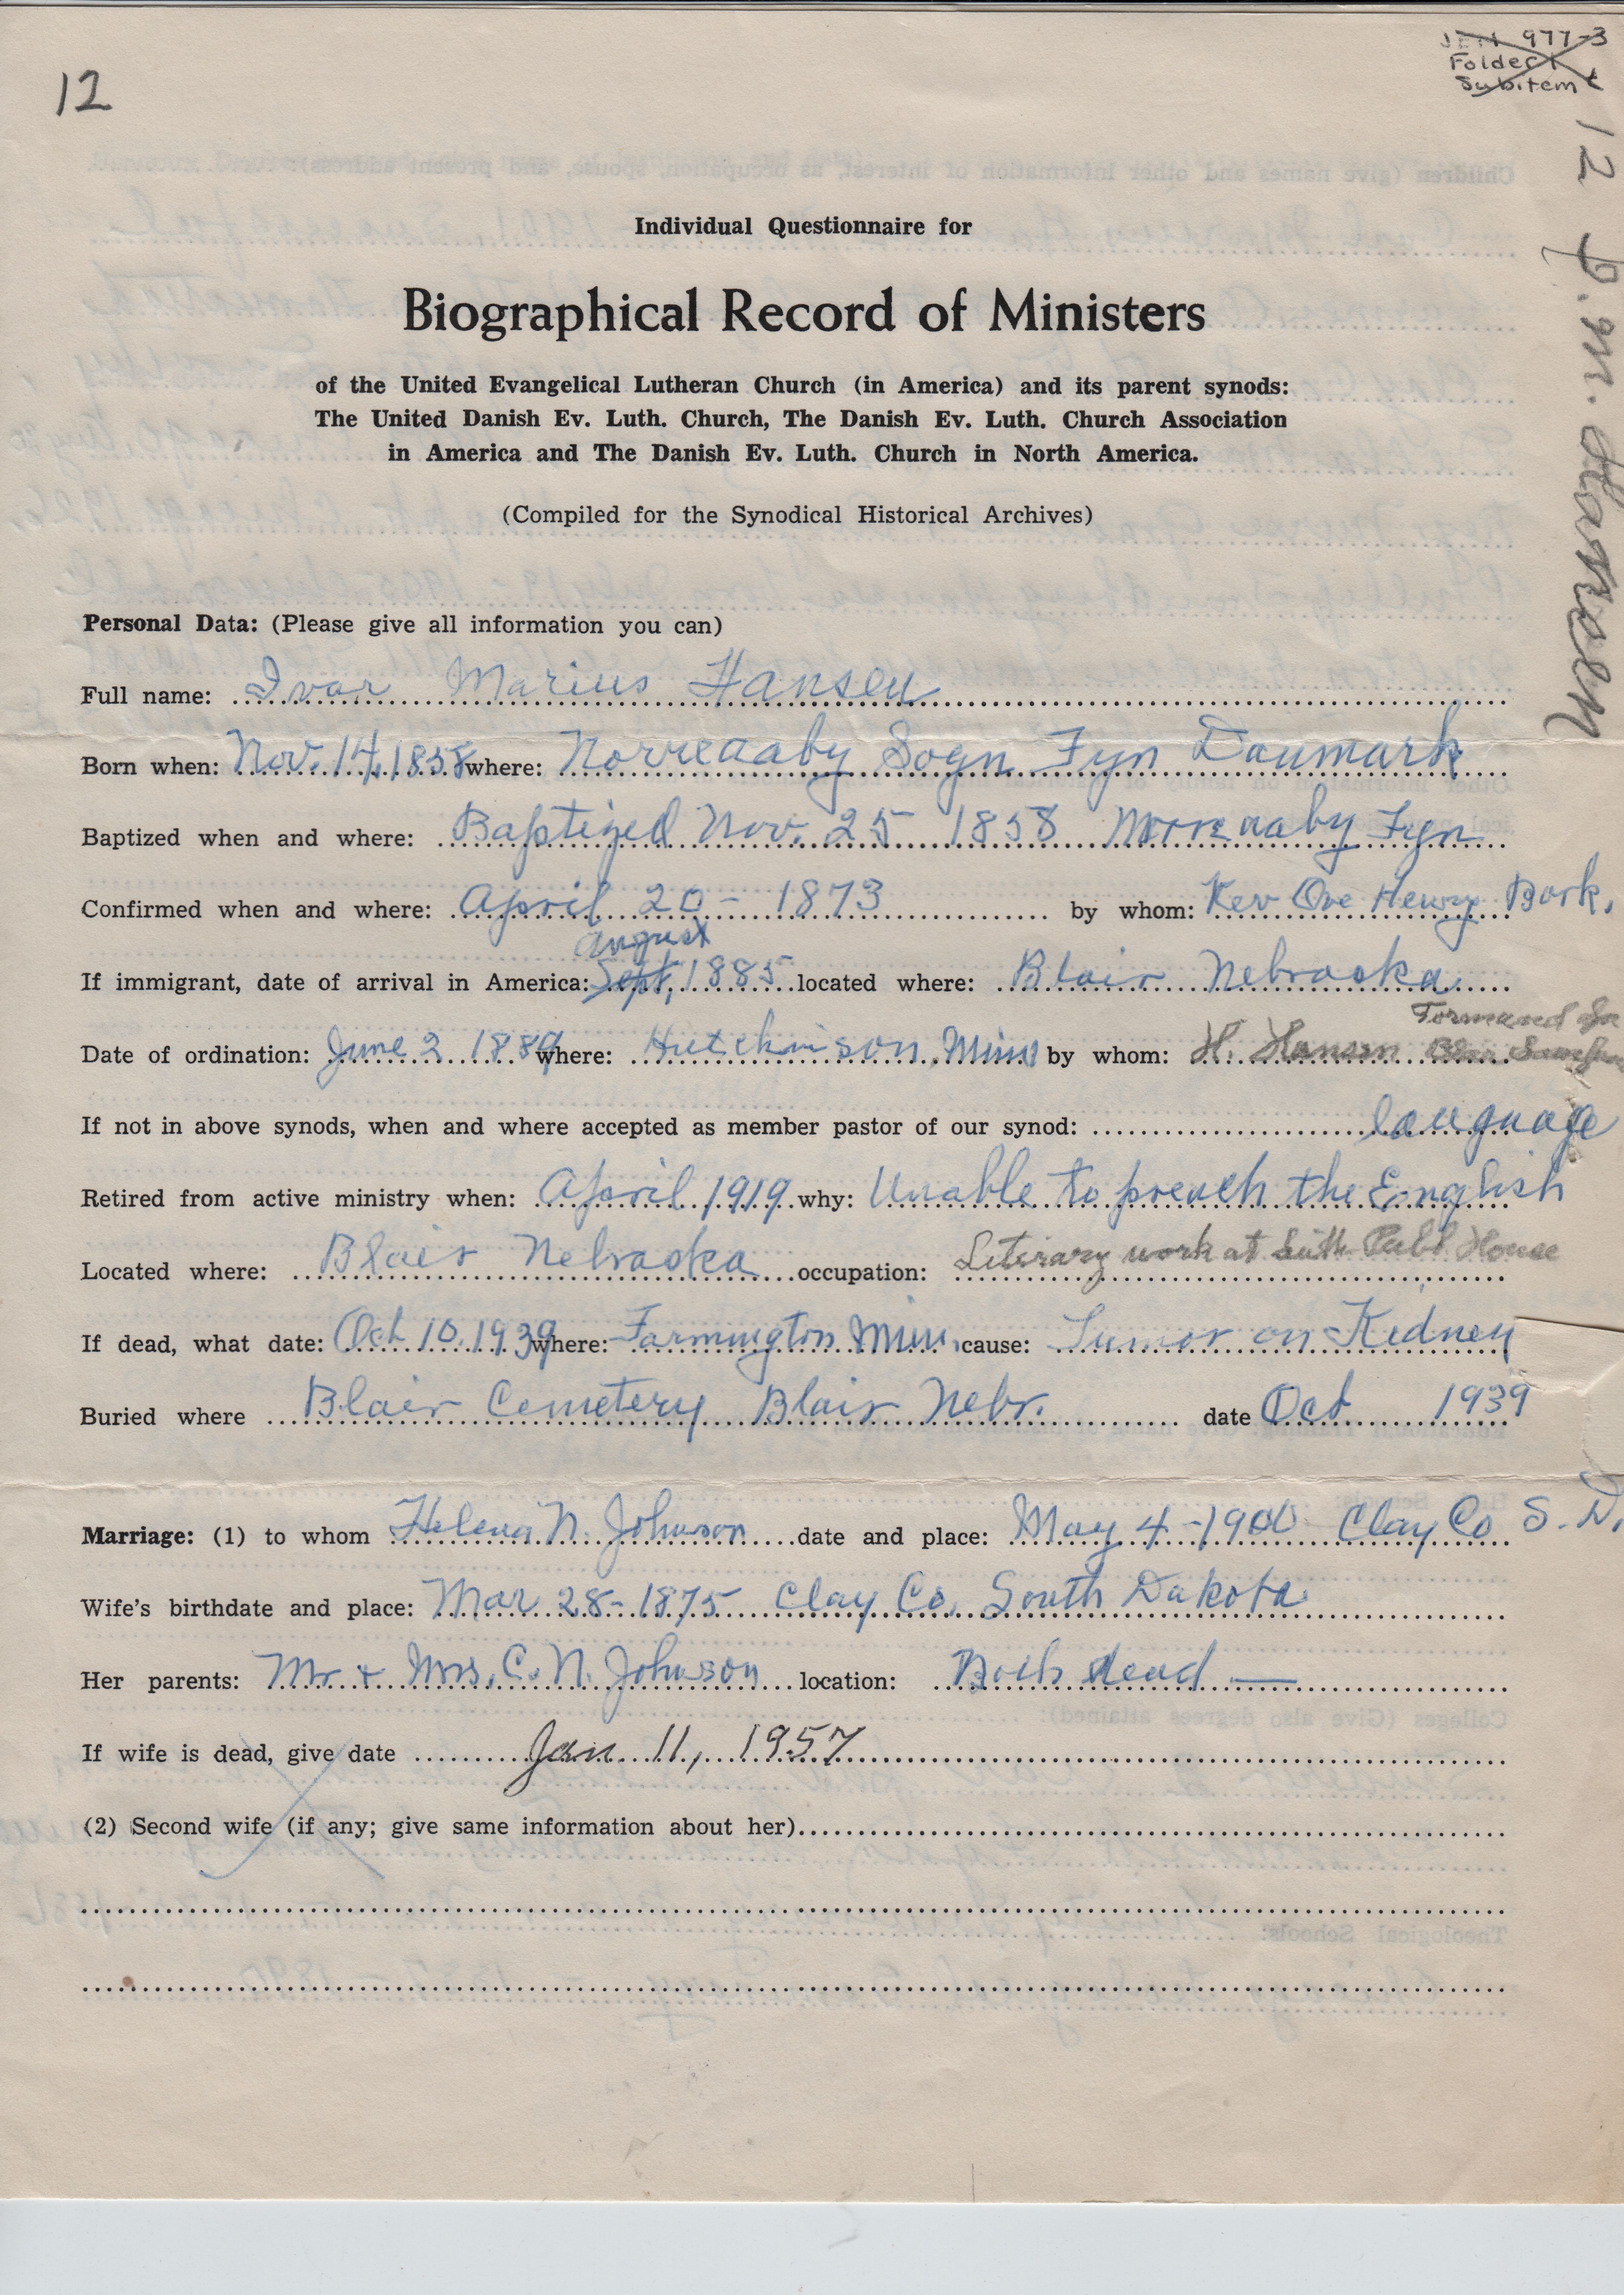 12
JEN 977-3
Folder 1
Subitem
12 I. M. Hansen
Individual Questionnaire for
Biographical Record of Ministers
of the United Evangelical Lutheran Church (in America) and its parent synods:
The United Danish Ev. Luth. Church, The Danish Ev. Luth. Church Association
in America and The Danish Ev. Luth. Church in North America.
(Compiled for the Synodical Historical Archives)
Personal Data: (Please give all information you can)
Full name: Ivar Marius Hansen
Born when: Nov. 14, 1858 where: Norreaaby Sogn Fyn Danmark
Baptized when and where: Baptized Nov. 25 1858 Norreaaby Fyn
Confirmed when and where: April 20 - 1873 by whom: Rev Ove Henry Bork.
august
If immigrant, date of arrival in America: Sept, 1885 located where: Blair Nebraska
Formand for
Date of ordination: June 2 1889 where: Hutchinson, Minn by whom: H. Hansen Blair Samfund
If not in above synods, when and where accepted as member pastor of our synod:
language
Retired from active ministry when: April 1919 why: Unable to preach the English
Located where: Blair Nebraska occupation: Literary work at Luth. Publ House
If dead, what date: Oct 10, 1939 where: Farmington Minn, cause: Tumor on Kidney
Buried where Blair Cemetery Blair Nebr. date Oct 1939
Marriage: (1) to whom Helena N. Johnson date and place: May 4 - 1900 Clay Co S. D.
Wife's birthdate and place: Mar 28 - 1875 Clay Co, South Dakota
Her parents: Mr. + Mrs. C. N. Johnson location: Both dead —
If wife is dead, give date Jan 11, 1957
(2) Second wife (if any; give same information about her)